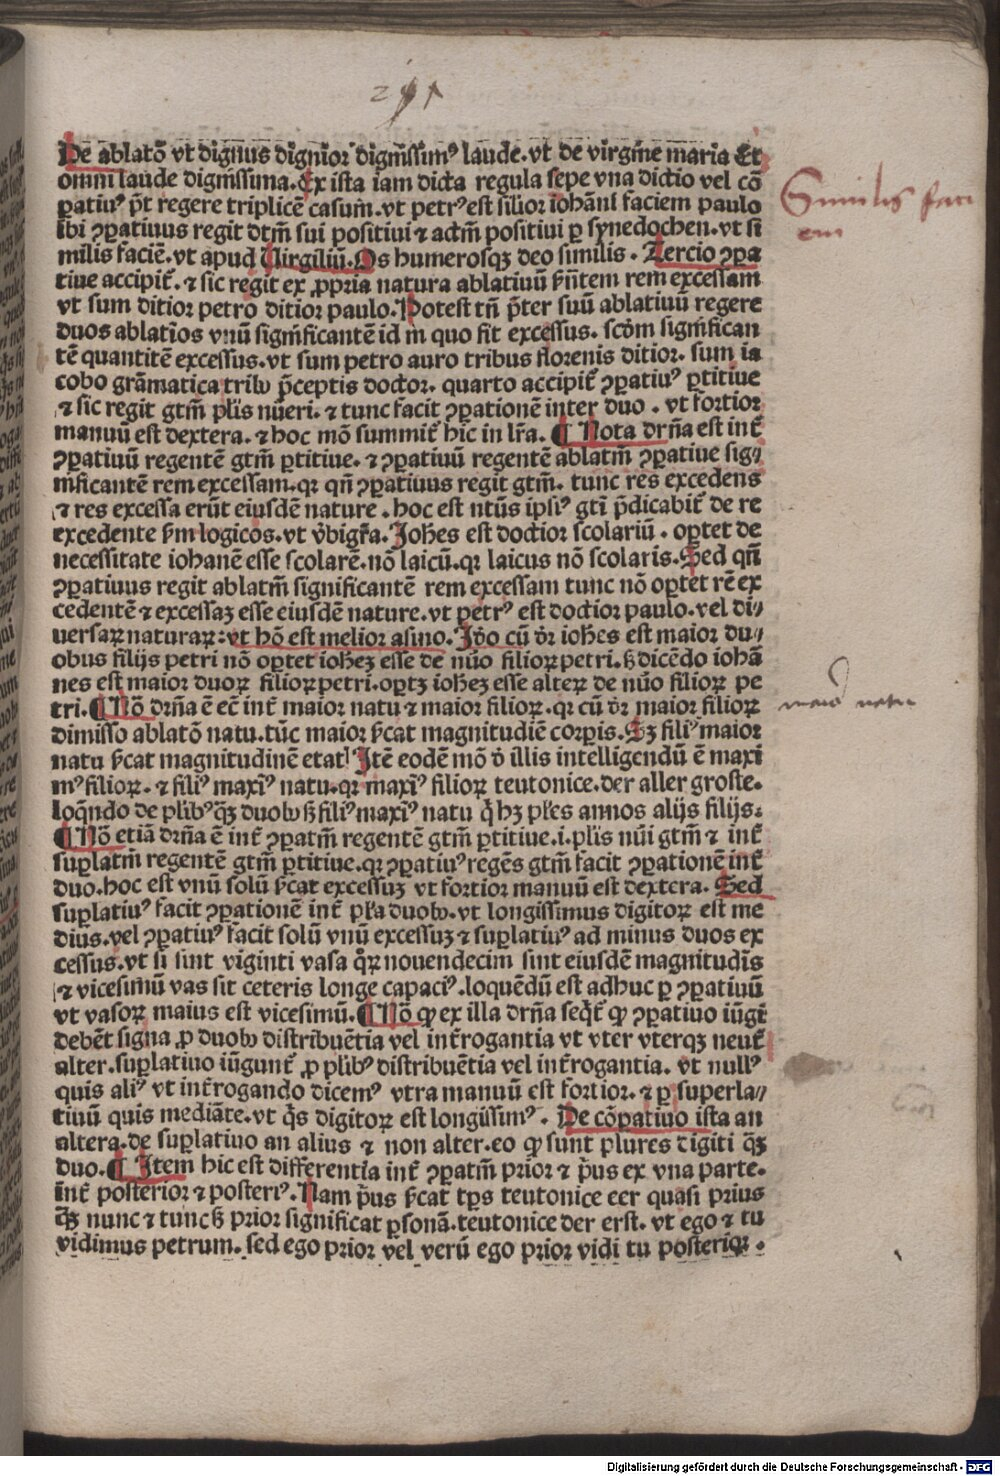 De ablatō vt dignus dignior dignissimꝰ laude. vt de virgine maria Et
omni laude dignissima. Ex ista iam dicta regula sepe vna dictio vel cō
ꝑatiuꝰ p̄t regere triplicē casum. vt petrꝰ est silior iohāni faciem paulo
ibi ꝯꝑatiuus regit dtm̄ sui positiui ⁊ actm̄ positiui ꝑ synedochen. vt si
milis faciē. vt apud Virgiliū. Os humerosqꝫ deo similis. Tercio ꝯꝑa
tiue accipit̄. ⁊ sic regit ex ꝓpria natura ablatiuū s̄ntem rem excessam
vt sum ditior petro ditior paulo. Potest tn̄ p̄ter suū ablatiuū regere
duos ablatīos vnū significantē id in quo fit excessus. scd̄m significan
tē quantitē excessus. vt sum petro auro tribus florenis ditior. sum ia
cobo grāmatica tribꝰ p̄ceptis doctor. quarto accipit̄ ꝯꝑatiuꝰ ꝑtitiue
⁊ sic regit gtm̄ pl̄is nūeri. ⁊ tunc facit ꝯꝑationē inter duo. vt fortior
manuū est dextera. ⁊ hoc mō summit̄ hic in lr̄a. ¶ Nota drn̄a est int̄
ꝯꝑatiuū regentē gtm̄ ꝑtitiue. ⁊ ꝯꝑatiuū regentē ablatm̄ ꝯꝑatiue sig//
nificantē rem excessam. qꝛ qn̄ ꝯꝑatiuus regit gtm̄. tunc res excedens
⁊ res excessa erūt eiusdē nature. hoc est nt̄ūs ipsiꝰ gtī p̄dicabit̄ de re
excedente s̄m logicos. vt v̄bigr̄a. Joh̄es est doctior scolariū. oꝑtet de
necessitate iohanē esse scolarē. nō laicū. qꝛ laicus nō scolaris. Sed qn̄
ꝯꝑatiuus regit ablatm̄ significantē rem excessam tunc nō oꝑtet rē ex
cedentē ⁊ excessaꝫ esse eiusdē nature. vt petrꝰ est doctior paulo. vel di//
uersaꝝ naturaꝝ: vt hō est melior asino. Jō cū dr̄ ioh̄es est maior du//
obus filijs petri nō oꝑtet ioh̄eꝫ esse de nūo filioꝝ petri. sꝫ dicēdo iohā
nes est maior duoꝝ filioꝝ petri. oꝑtꝫ ioh̄eꝫ esse alteꝝ de nūo filioꝝ pe
tri. ¶ Nō drn̄a ē eē int̄ maior natu ⁊ maior filioꝝ. qꝛ cū dr̄ maior filioꝝ
dimisso ablatō natu. tūc maior s̄cat magnitudiē corꝑis. Sꝫ filiꝰ maior
natu s̄cat magnitudinē etatꝭ Jtē eodē mō d̄ illis intelligendū ē maxi
mꝰ filioꝝ. ⁊ filiꝰ maxiꝰ natu. qꝛ maxiꝰ filioꝝ teutonice. der aller groste.
loqn̄do de plibꝰ qꝫ duobꝰ sꝫ filiꝰ maxiꝰ natu q̇ hꝫ pl̄es annos alijs filijs.
¶ Nō etiā drn̄a ē int̄ ꝯꝑatm̄ regentē gtm̄ ꝑtitiue. i. pl̄is nūi gtm̄ ⁊ int̄
suꝑlatm̄ regentē gtm̄ ꝑtitiue. qꝛ ꝯꝑatiuꝰ regēs gtm̄ facit ꝯꝑationē int̄
duo. hoc est vnū solū s̄cat excessuꝫ vt fortior manuū est dextera. Sed
suꝑlatiuꝰ facit ꝯꝑationē int̄ pl̄a duobꝰ. vt longissimus digitoꝝ est me
dius. vel ꝯꝑatiuꝰ facit solū vnū excessuꝫ ⁊ suꝑlatiuꝰ ad minus duos ex
cessus. vt si sint viginti vasa qͦꝝ nouendecim sint eiusdē magnitudīs
⁊ vicesimū vas sit ceteris longe capaciꝰ. loquēdū est adhuc ꝑ ꝯꝑatiuū
vt vasoꝝ maius est vicesimū. ¶ Nō ꝙ ex illa drn̄a seqt̄ ꝙ ꝯꝑatiuo iūgi
debēt signa ꝓ duobꝰ distribuētia vel int̄rogantia vt vter vterqꝫ neut̄
alter. suꝑlatiuo iūgunt̄ ꝓ plibꝰ distribuētia vel int̄rogantia. vt nullꝰ
quis aliꝰ vt int̄rogando dicemꝰ vtra manuū est fortior. ⁊ ꝑ superla//
tiuū quis mediāte. vt qͥs digitoꝝ est longissimꝰ. De cōpatiuo ista an
altera. de suꝑlatiuo an alius ⁊ non alter. eo ꝙ sunt plures digiti qꝫ
duo. ¶ Jtem hic est differentia int̄ ꝯꝑatm̄ prior ⁊ pͥus ex vna parte.
int̄ posterior ⁊ posteriꝰ. Nam pͥus s̄cat tp̄s teutonice eer quasi prius
qꝫ nunc ⁊ tunc sꝫ prior significat ꝑsonā. teutonice der erst. vt ego ⁊ tu
vidimus petrum. sed ego prior vel verū ego prior vidi tu posteriꝰ.
Similis faci
em
maior natu